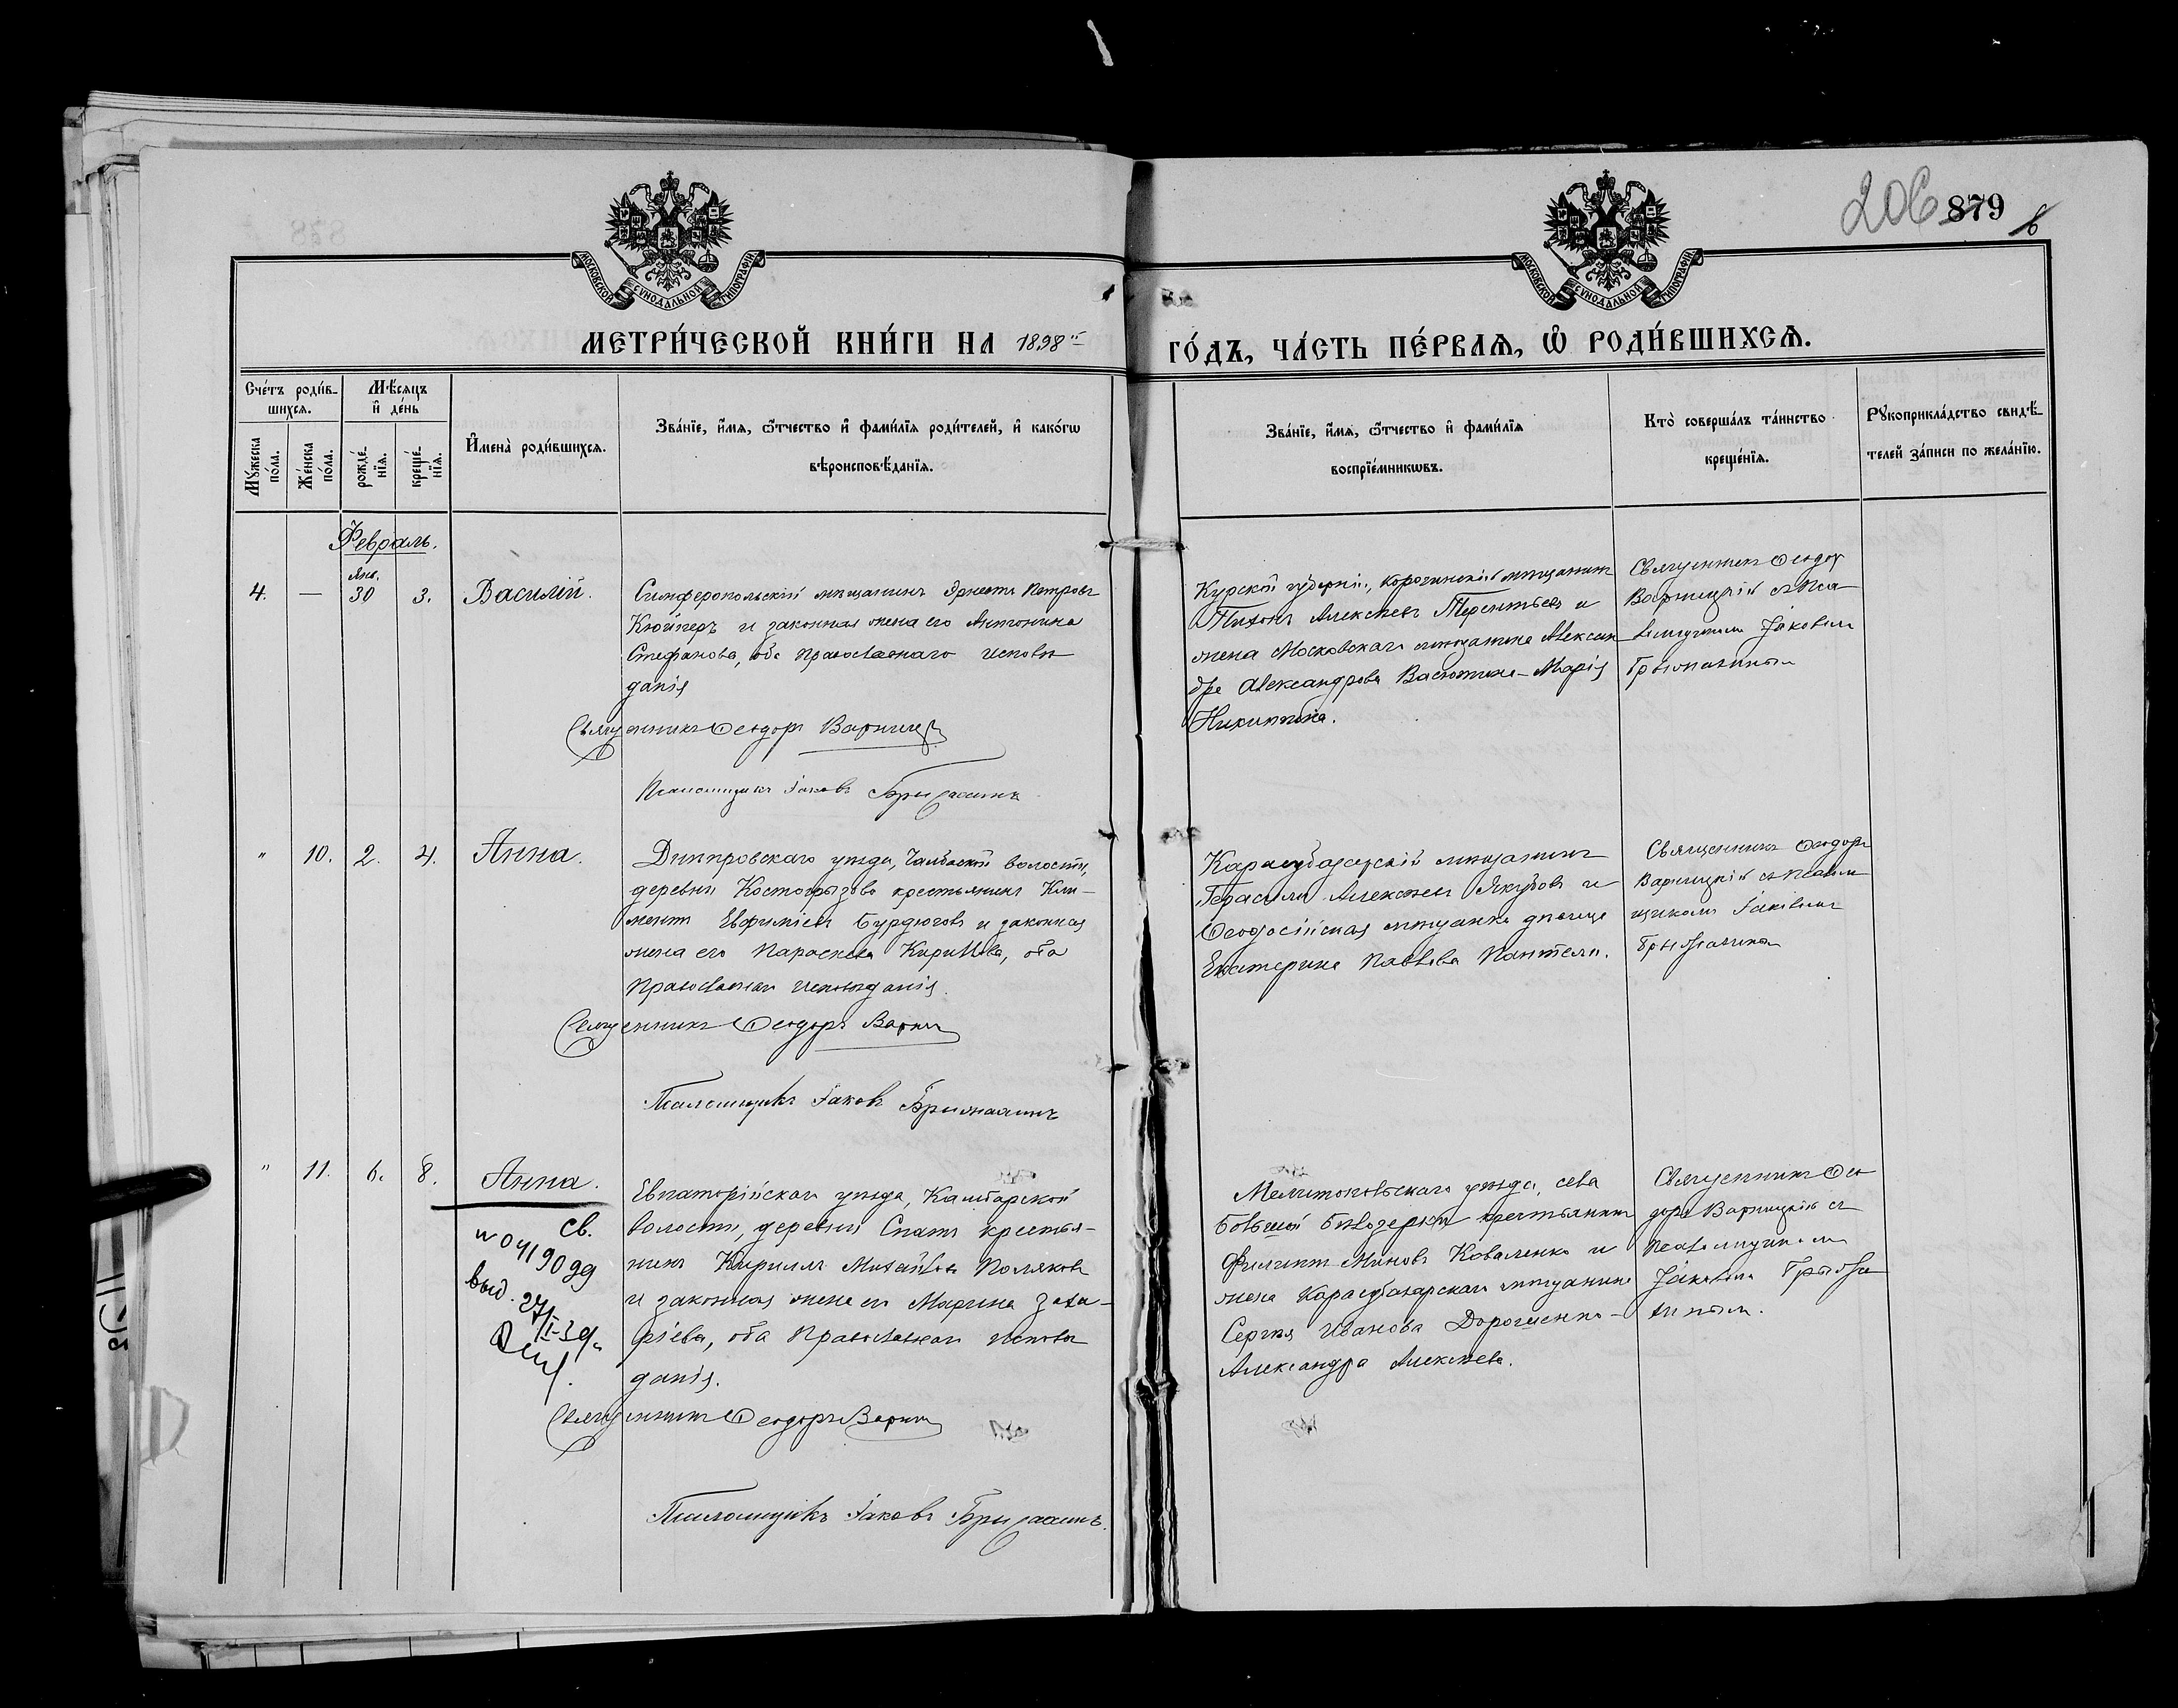 206 879
МОСКОВСКОЙ СУНОДАЛЬНОЙ ТИПОГРАФІИ
МОСКОВСКОЙ СУНОДАЛЬНОЙ ТИПОГРАФІИ
МЕТРИ́ЧЕСКОЙ КНИ́ГИ НА 1898
ГО́ДЪ, ЧА́СТЬ ПЕ́РВАѦ, Ѡ РОДИ́ВШИХСѦ.
Сче́тъ роди́в-
шихсѧ.
Мѣ́сѧцъ
и҆ де́нь
Мꙋ́жеска
по́ла.
Же́нска
по́ла.
рожде́-
нїѧ.
креще́-
нїѧ.
И҆мена̀ роди́вшихсѧ.
Зва́нїе, и҆́мѧ, ѻ҆́тчество и҆ фами́лїѧ роди́телей, и҆ како́гѡ
вѣроисповѣ́данїѧ.
Зва́нїе, и҆́мѧ, ѻ҆́тчество и҆ фами́лїѧ
воспрїе́мникѡвъ.
Кто̀ соверша́лъ та́инство
креще́нїѧ.
Рꙋкоприкла́дство свидѣ́-
телей за́писи по жела́нїю.
Февраль.
4. — Янв. 30 3. Василій.
Симферопольскій мѣщанинъ Эрнестъ Петровъ
Кюйперъ и законная жена его Антонина
Стефанова, оба православнаго исповѣ
данія
Священникъ Ѳеодоръ Варницкі
Псаломщикъ Іаковъ
Курской губерніи, корочинскій мѣщанинъ
Тихонъ Алексѣевъ Терентьевъ и
жена Московскаго мѣщанина Алексан
дра Александрова Васютина - Марія
Никитина.
Священникъ Ѳеодор
Варницкій съ Пса
ломщикомъ Іаковомъ
" 10. 2. 4. Анна.
Днѣпровскаго уѣзда, Чалбасской волости,
деревни Костогрызово крестьянинъ Кли-
ментъ Евфиміевъ Бурдюговъ и законная
жена его Параскева Кириллова, оба
Православнаго исповѣданія.
Священникъ Ѳеодоръ Варни
Псаломщикъ Іаковъ
Карасубазарскій мѣщанинъ
Герасимъ Алексѣевъ Якубовъ и
Ѳеодосійская мѣщанка дѣвица
Екатерина Павлова Пантели.
Священникъ Ѳеодоръ
Варницкій съ Псалом
щикомъ Іаковомъ
" 11. 6. 8. Анна.
св.
выд. 27/I-39г.
Евпаторійскаго уѣзда, Камбарской
волости, деревни Спатъ крестья-
нинъ Кириллъ Михайловъ Поляковъ
и законная жена его Марина Заха-
ріева, оба Православнаго исповѣ
данія.
Священникъ Ѳеодоръ Варни
Псаломщикъ Іаковъ
Мелитопольскаго уѣзда, села
Большой Бѣлозерки крестьянинъ
Филиппъ Миновъ Коваленко и
жена Карасубазарскаго мѣщанина
Сергѣя Иванова Дорошенко -
Александра Алексѣева.
Священникъ Ѳео
доръ Варницкій съ
Псаломщикомъ
Іаковомъ